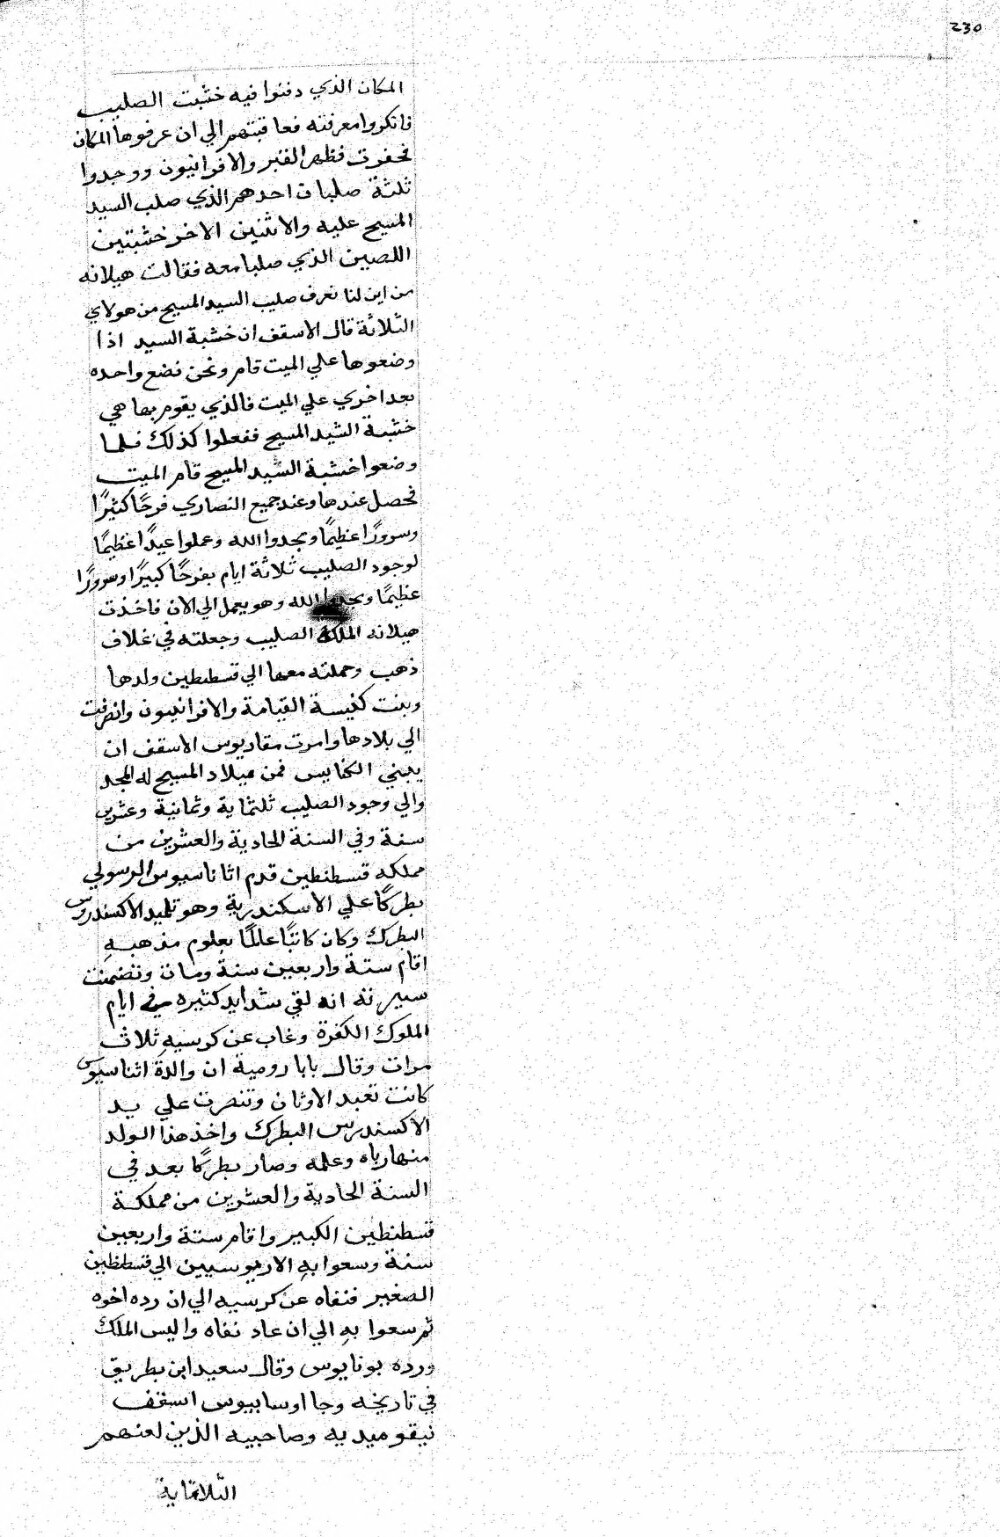 230
المكان الذي دفنوا فيه خشبت الصليب
فانكروا معرفته فعاقبتهم الي ان عرفوها المكان
فحفرت فظهر القبر والاقرانيون ووجدوا
ثلثة صلبان احدهم الذي صلب السيد
المسيح عليه والاثنين الاخر خشبتين
اللصين الذي صلبا معه فقالت هيلانه
من اين لنا نعرف صليب السيد المسيح من هولاي
الثلاثة قال الاسقف ان خشبة السيد اذا
وضعوها علي الميت قام ونحن نضع واحده
بعد اخري علي الميت فالذي يقوم بها هي
خشبة السيد المسيح ففعلوا كذلك فلما
وضعوا خشبة السيد المسيح قام الميت
فحصل عندها وعند جميع النصاري فرحًا كثيرًا
وسرورًا عظيمًا ومجدوا الله وعملوا عيدًا عظيمًا
لوجود الصليب ثلاثة ايام بفرحًا كبيرًا وسرورًا
عظيمًا ومجدوا الله وهو يعمل الي الان فاخذت
هيلانه الملكة الصليب وجعلته في غلاف
ذهب وحملته معها الي قسطنطين ولدها
وبنت كنيسة القيامة والاقرانيون وانصرفت
الي بلادها وامرت مقاريوس الاسقف ان
يبني الكنايس فمن ميلاد المسيح له المجد
والي وجود الصليب ثلثماية وثمانية وعشرين
سنة وفي السنة الحادية والعشرين من
مملكه قسطنطين قدم اثاناسيوس الرسولي
بطركًا علي الاسكندرية وهو تلميد الاكسندروس
البطرك وكان كاتبًا عالمًا بعلوم مذهبهِ
اقام ستة واربعين سنة ومات وتضمنت
سيرته انه لقي شدايد كثيره في ايام
الملوك الكفرة وغاب عن كرسيهِ ثلاث
مرات وقال بابا رومية ان والدة اثناسيوس
كانت تعبد الاوثان وتنصرت علي يد
الاكسندرس البطرك واخذ هذا الولد
منها رباه وعلمه وصار بطركًا بعد في
السنة الحادية والعشرين من مملكة
قسطنطين الكبير واقام ستة واربعين
سنة وسعوا بهِ الاريوسيين الي قسطنطين
الصغير فنفاه عن كرسيه الي ان رده اخوه
ثم سعوا بهِ الي ان عاد نفاه واليس الملك
ورده يونايوس وقال سعيد ابن بطريق
في تاريخه وجا اوسابيوس اسقف
نيقوميديه وصاحبيه الذين لعنهم
الثلاثماية